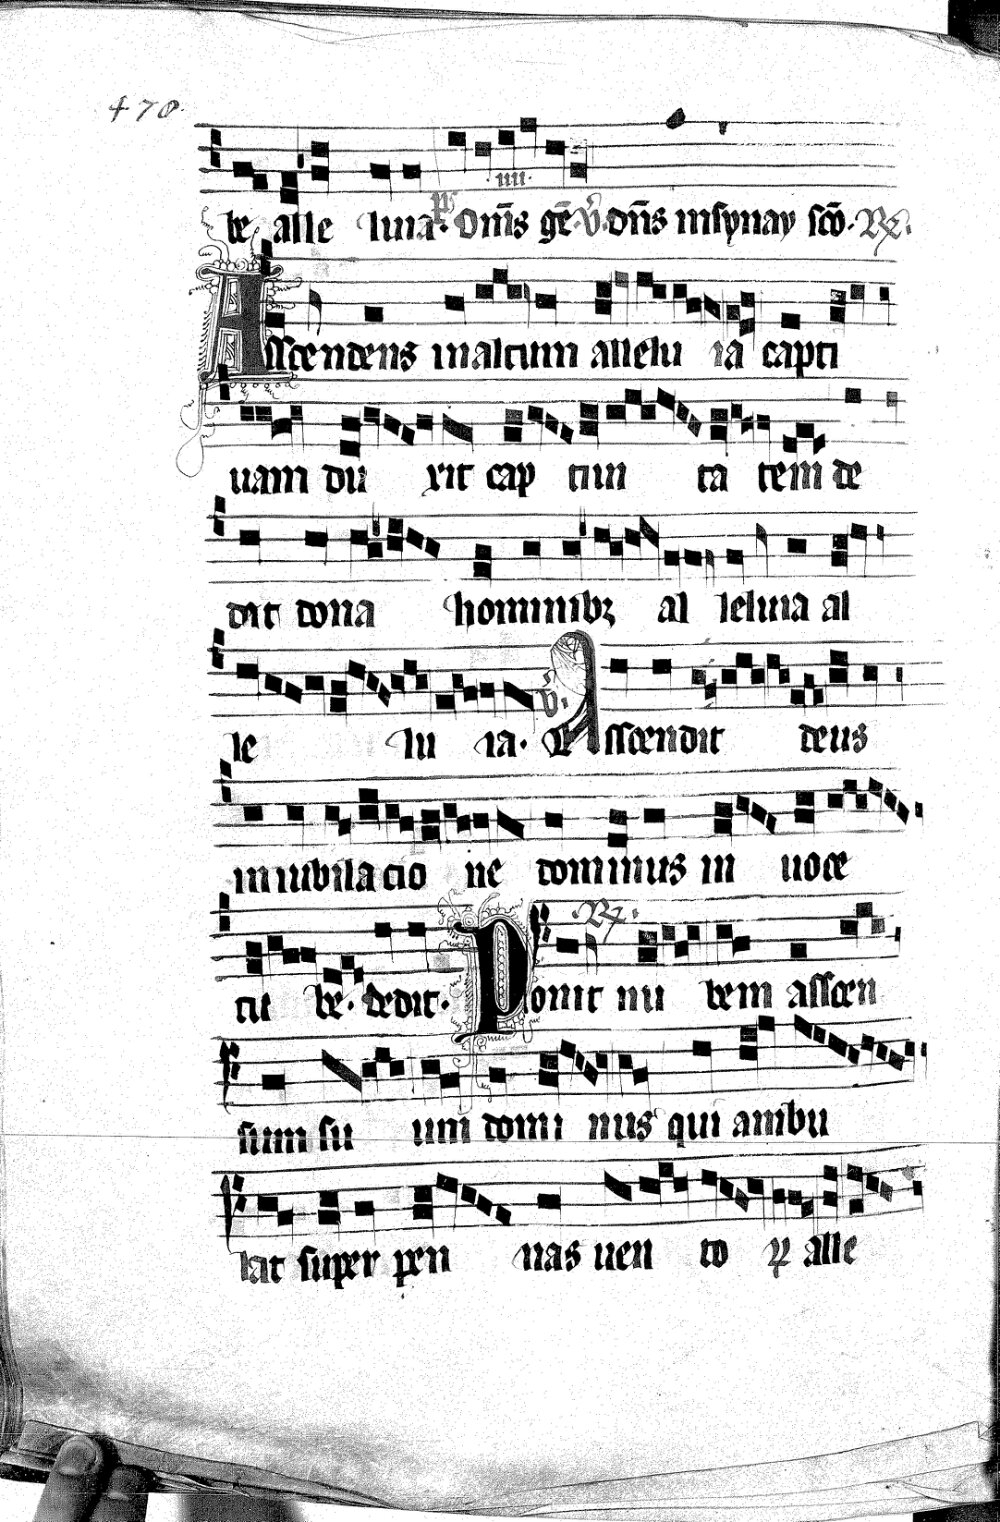 470.
be alle luia. ps Om̄s gē. v̄. dn̄s insynay scō. R.
Asscendens in altum allelu ia capti
uam du xit cap tiui ta tem de
dit dona hominibꝫ al leluia al
le lu ia. v̄. Asscendit deus
in iubilacio ne dominus in uoce
tu be. dedit. R. Ponit nu bem asscen
sum su um domi nus qui ambu
lat super pen nas uen to ꝝ alle